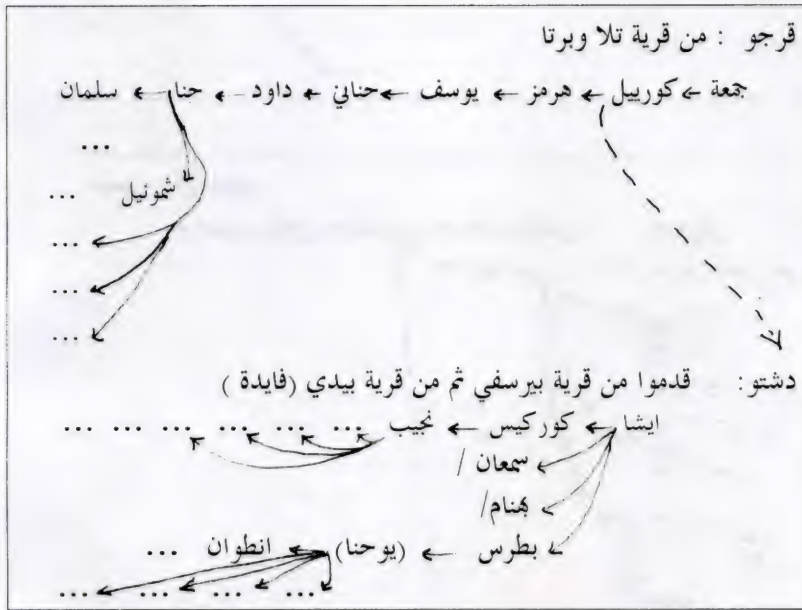 قرجو : من قرية تلا وبرتا
جمعة ← كورييل ← هرمز ← يوسف ← حناني ← داود ← حنا ← سلمان
...
شموئيل ...
...
...
...
دشتو: قدموا من قرية بيرسفي ثم من قرية بيدي (فايدة )
ايشا ← كوركيس ← نجيب ... ... ... ... ... ...
سمعان /
بهنام/
بطرس ← (يوحنا) ← انطوان ...
... ... ... ...